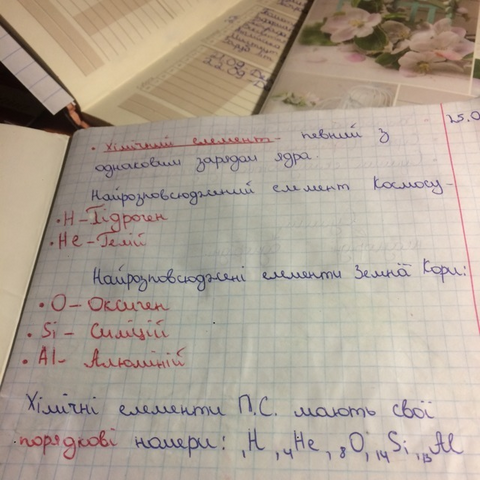 25.0
• Хімічний елемент - певний з
однаковим зарядом ядра.
Найрозповсюджений елемент Космосу -
• H - Гідроген
• He - Гелій
Найрозповсюджені елементи Земної Кори:
• O - Оксиген
• Si - Силіцій
• Al - Алюміній
Хімічні елементи П.С. мають свої
порядкові номери: ₁H, ₄He, ₈O, ₁₄Si, ₁₃Al